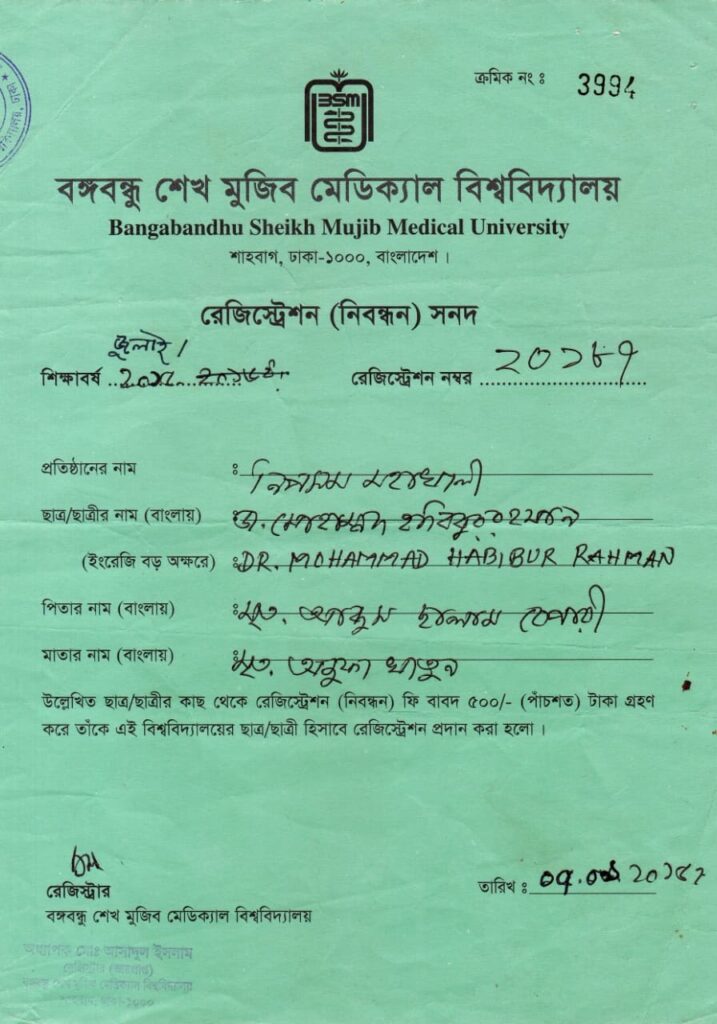 ক্রমিক নং ঃ 3994
BSM
বঙ্গবন্ধু শেখ মুজিব মেডিক্যাল বিশ্ববিদ্যালয়
Bangabandhu Sheikh Mujib Medical University
শাহবাগ, ঢাকা-১০০০, বাংলাদেশ ।
রেজিস্ট্রেশন (নিবন্ধন) সনদ
জুলাই/
শিক্ষাবর্ষ রেজিস্ট্রেশন নম্বর
প্রতিষ্ঠানের নাম ঃ নিপসম মহাখালী
ছাত্র/ছাত্রীর নাম (বাংলায়) ঃ ডা. মোহাম্মদ হাবিবুর রহমান
(ইংরেজি বড় অক্ষরে) ঃ DR. MOHAMMAD HABIBUR RAHMAN
পিতার নাম (বাংলায়) ঃ মৃত. ছালাম বেপারী
মাতার নাম (বাংলায়) ঃ মৃত. খাতুন
উল্লেখিত ছাত্র/ছাত্রীর কাছ থেকে রেজিস্ট্রেশন (নিবন্ধন) ফি বাবদ ৫০০/- (পাঁচশত) টাকা গ্রহণ
করে তাঁকে এই বিশ্ববিদ্যালয়ের ছাত্র/ছাত্রী হিসাবে রেজিস্ট্রেশন প্রদান করা হলো ।
রেজিস্ট্রার
তারিখ ঃ
বঙ্গবন্ধু শেখ মুজিব মেডিক্যাল বিশ্ববিদ্যালয়
অধ্যাপক মোঃ আসাদুল ইসলাম
রেজিস্ট্রার (ভারপ্রাপ্ত)
বঙ্গবন্ধু শেখ মুজিব মেডিক্যাল বিশ্ববিদ্যালয়
শাহবাগ, ঢাকা-১০০০